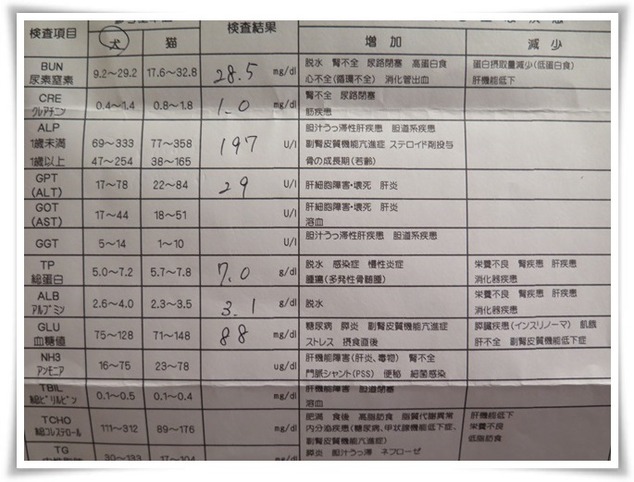 検査項目 犬 猫 検査結果 増加 減少
BUN 9.2~29.2 17.6~32.8 28.5 mg/dl 脱水 腎不全 尿路閉塞 高蛋白食 蛋白摂取量減少(低蛋白食)
尿素窒素 心不全(循環不全) 消化管出血 肝機能低下
CRE 0.4~1.4 0.8~1.8 1.0 mg/dl 腎不全 尿路閉塞
クレアチニン 筋疾患
ALP 胆汁うっ滞性肝疾患 胆道系疾患
1歳未満 69~333 77~358 197 U/l 副腎皮質機能亢進症 ステロイド剤投与
1歳以上 47~254 38~165 骨の成長期(若齢)
GPT 17~78 22~84 29 U/l 肝細胞障害・壊死 肝炎
(ALT)
GOT 17~44 18~51 U/l 肝細胞障害・壊死 肝炎
(AST) 溶血
GGT 5~14 1~10 U/l 胆汁うっ滞性肝疾患 胆道系疾患
TP 5.0~7.2 5.7~7.8 7.0 g/dl 脱水 感染症 慢性炎症 栄養不良 腎疾患 肝疾患
総蛋白 腫瘍(多発性骨髄腫) 消化器疾患
ALB 2.6~4.0 2.3~3.5 3.1 g/dl 脱水 栄養不良 腎疾患 肝疾患
アルブミン 消化器疾患
GLU 75~128 71~148 88 mg/dl 糖尿病 膵炎 副腎皮質機能亢進症 膵臓疾患(インスリノーマ) 飢餓
血糖値 ストレス 摂食直後 肝不全 副腎皮質機能低下症
NH3 16~75 23~78 ug/dl 肝機能障害(肝炎、毒物) 腎不全
アンモニア 門脈シャント(PSS) 便秘 細菌感染
TBIL 0.1~0.5 0.1~0.4 mg/dl 肝機能障害 胆道閉塞
総ビリルビン 溶血
TCHO 111~312 89~176 mg/dl 肥満 食後 高脂肪食 脂質代謝異常 肝機能低下
総コレステロール 内分泌疾患(糖尿病、甲状腺機能低下症、 栄養不良
副腎皮質機能亢進症) 低脂肪食
TG 30~133 17~104 mg/dl 膵炎 胆汁うっ滞 ネフローゼ